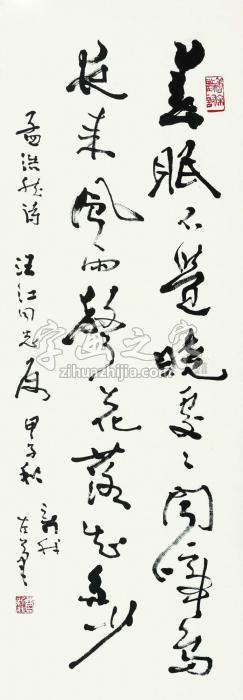 春眠不觉晓处处闻啼鸟
夜来风雨声花落知多少
孟浩然诗 汪江同志属 甲子秋
字画之家
zihuazhijia.com